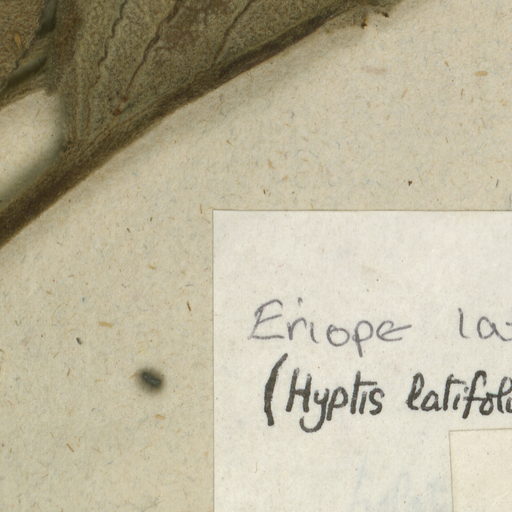 Eriope la
(Hyptis latifoli